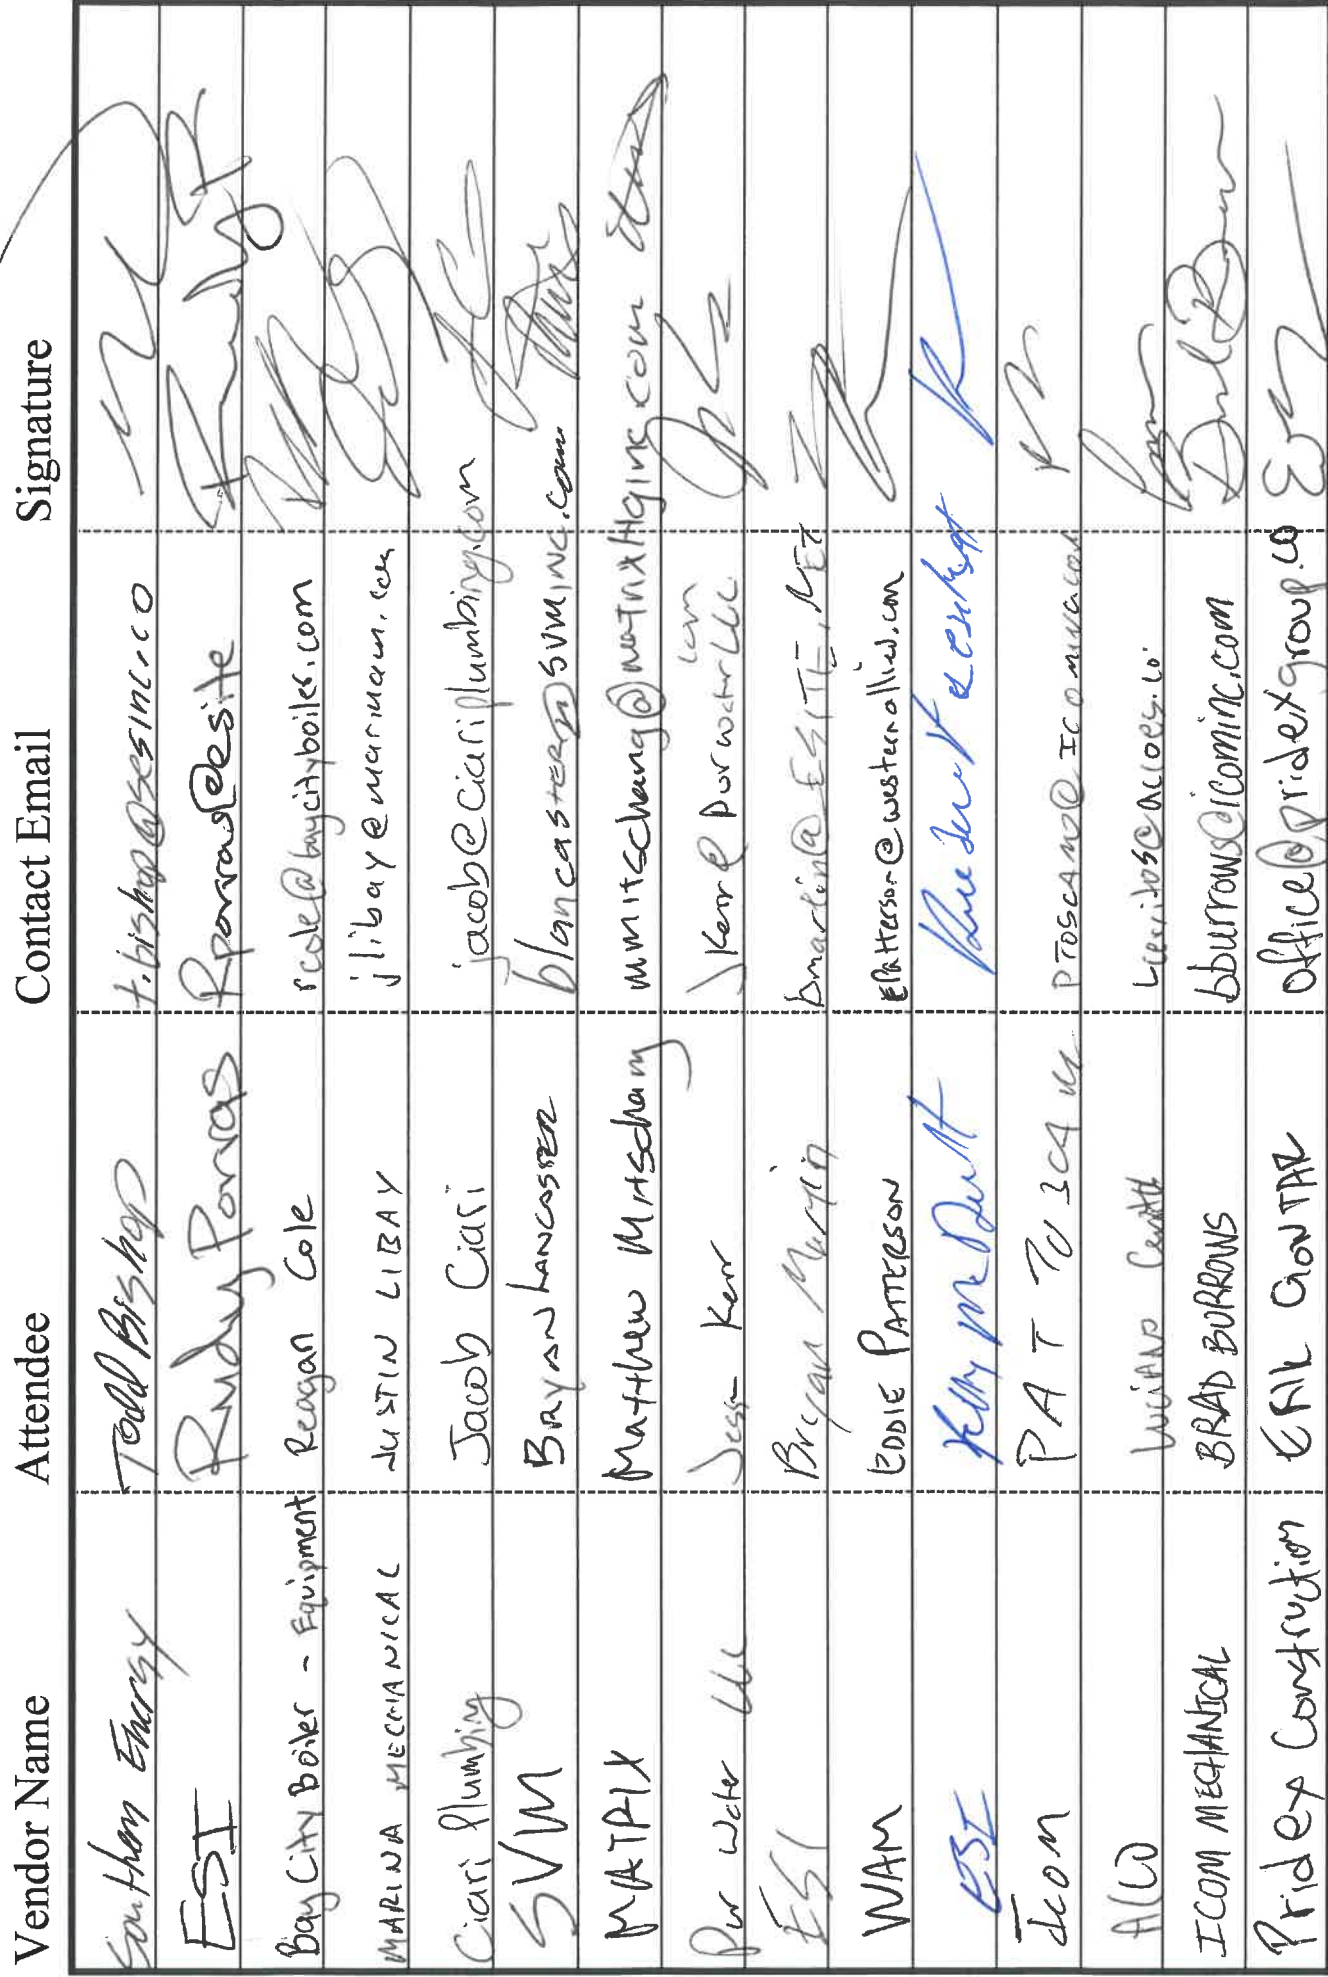 Vendor Name Attendee Contact Email Signature
Southern Energy Todd Bishop t.bishop@sesinc.co
ESI Rudy Porras Rporras@esite
Bay City Boiler - Equipment Reagan Cole rcole@baycityboiler.com
MARINA MECHANICAL JUSTIN LIBAY jlibay@marinam.com
Ciari Plumbing Jacob Ciari jacob@ciariplumbing.com
SVM BRYAN LANCASTER blancaster@SVMINC.com
MATRIX Matthew Mitschang mmitschang@matrixHginc.com
Pur Water LLC Jesse Kerr JKerr@PurwaterLLC.com
ESI Bryan Martin bmartin@ESITE.NET
WAM EDDIE PATTERSON EPatterson@westernallied.com
ESI Kelly McDevitt
Icom PAT TOSCANO PTOSCANO@ICOMINC.COM
ALCO
ICOM MECHANICAL BRAD BURROWS bburrows@icominc.com
Pridex Construction ERIK GONTAR Office@pridexgroup.co